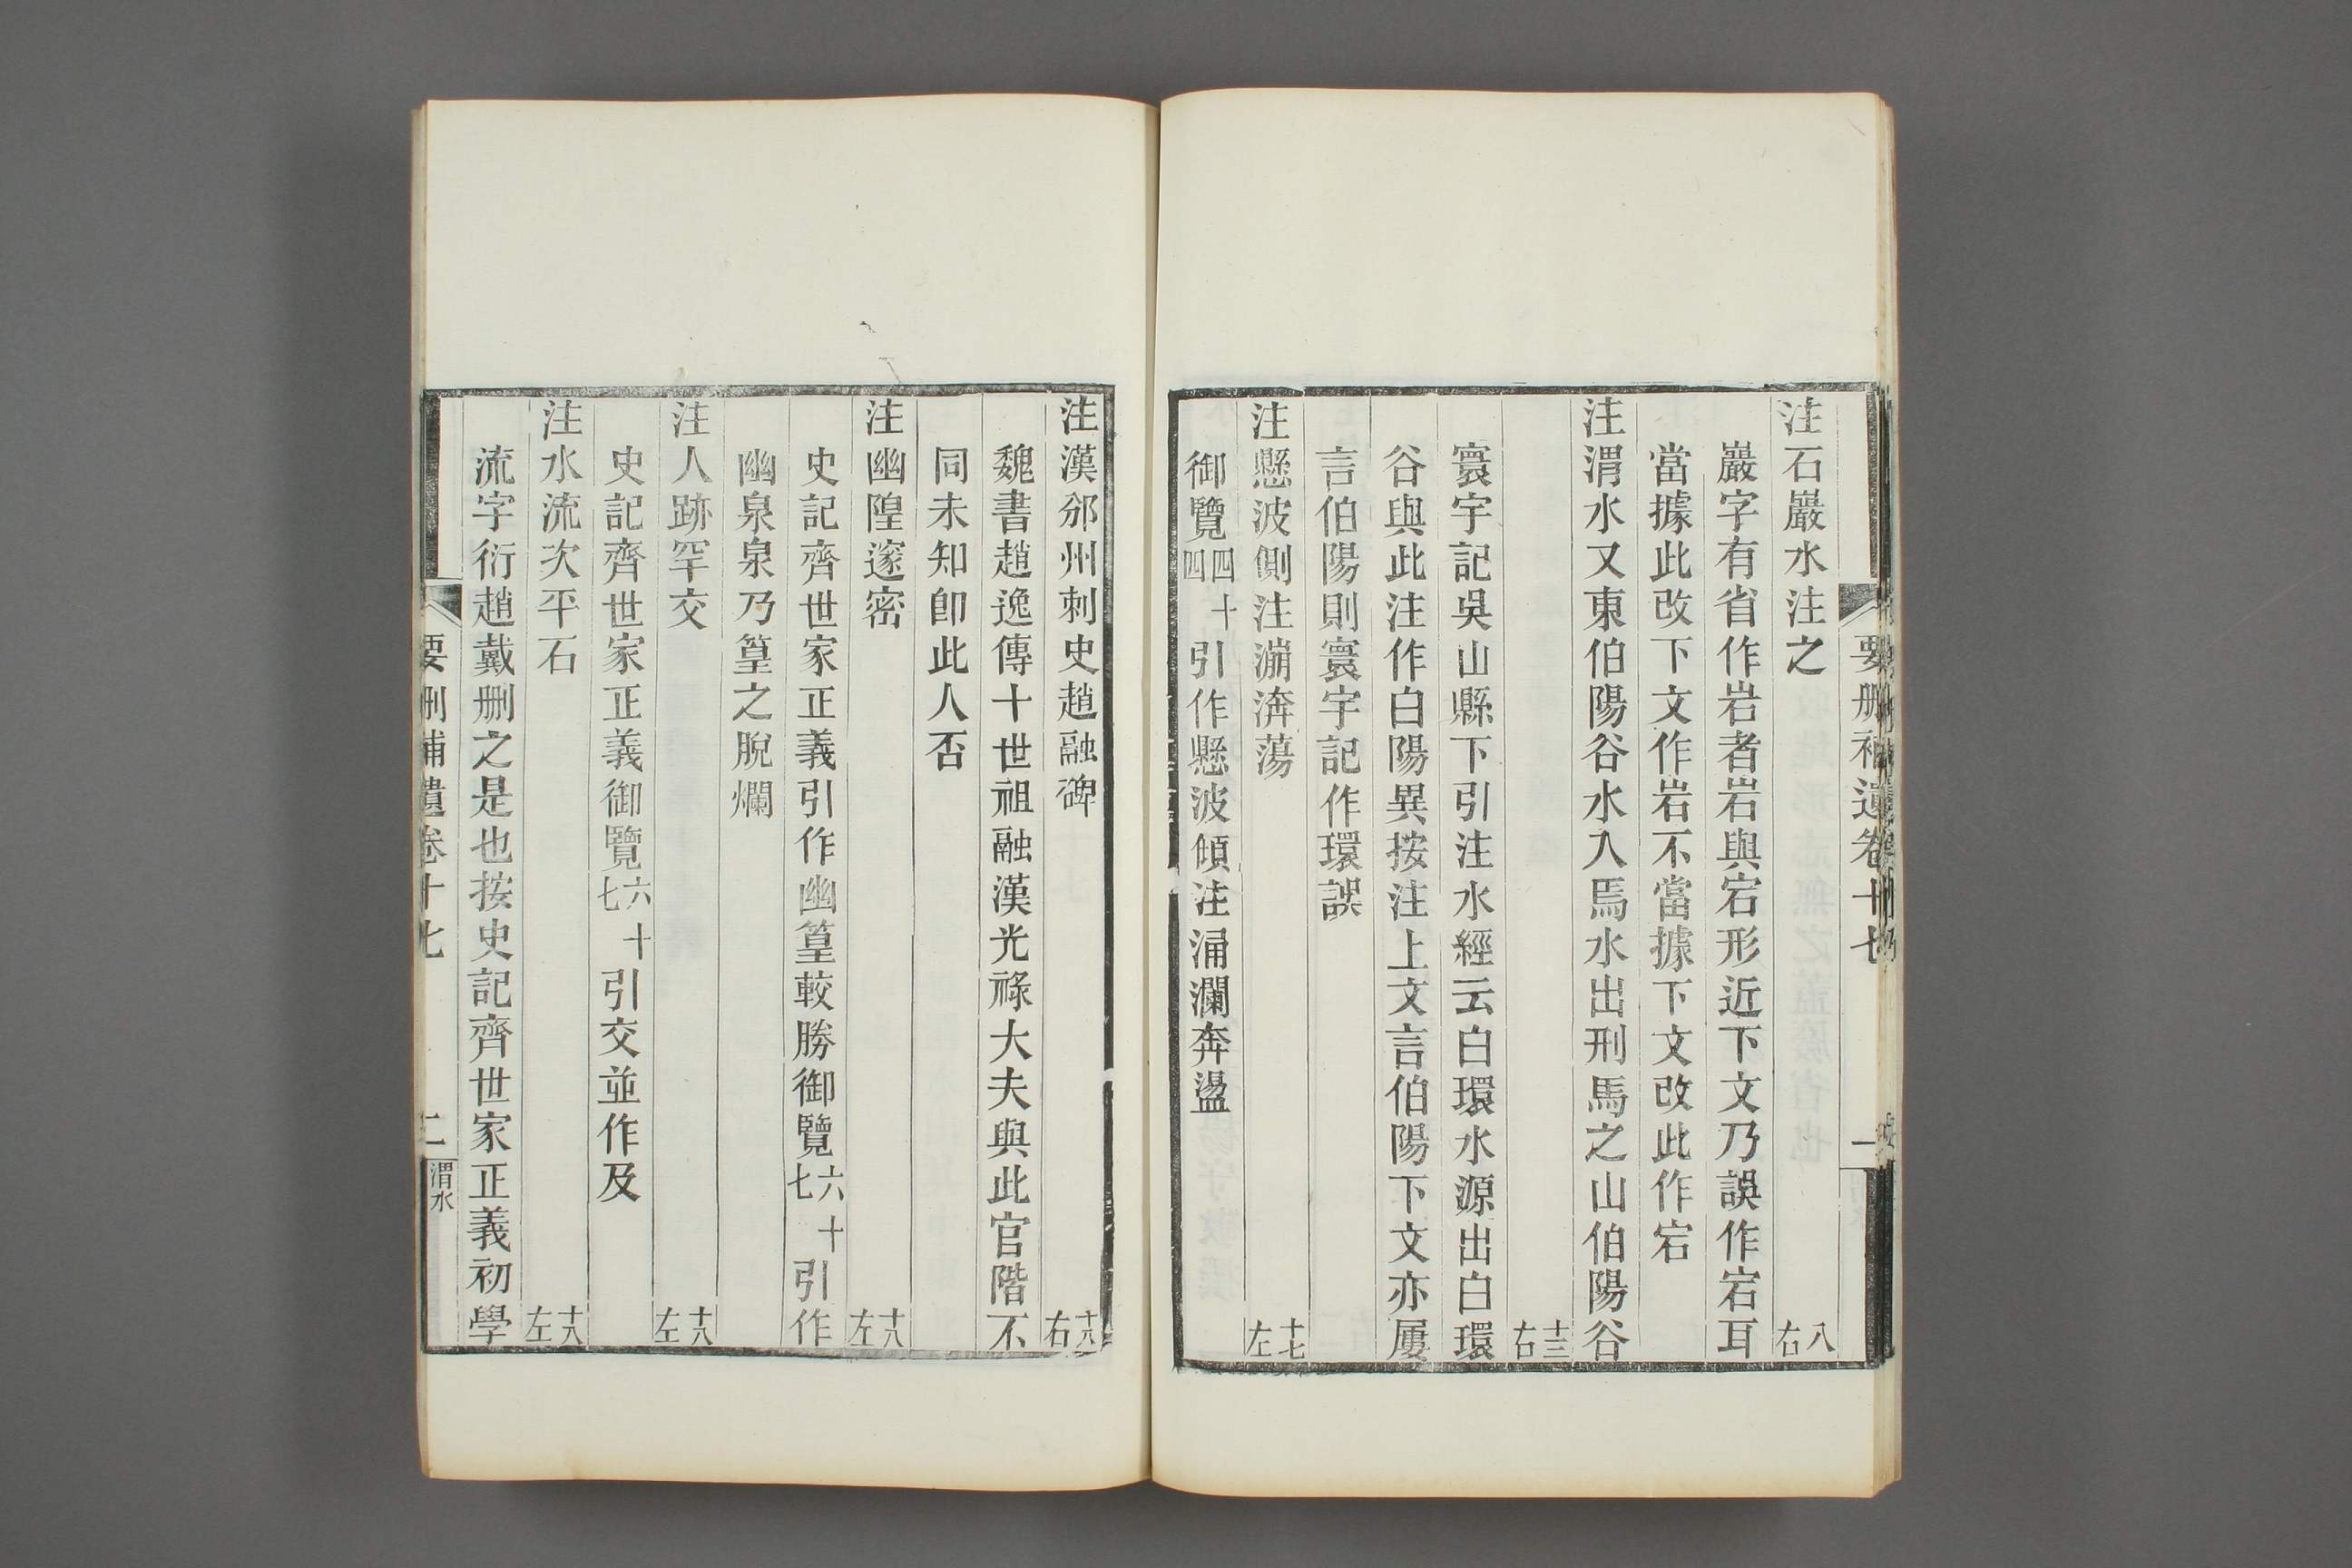 要刪補遺卷十七 一
注石巖水注之 八右
巖字有省作岩者岩與宕形近下文乃誤作宕耳
當據此改下文作岩不當據下文改此作宕
注渭水又東伯陽谷水入焉水出刑馬之山伯陽谷
十三右
寰宇記吳山縣下引注水經云白環水源出白環
谷與此注作白陽異按注上文言伯陽下文亦屢
言伯陽則寰宇記作環誤
注懸波側注漰渀蕩 十七左
御覽四十四引作懸波傾注涌瀾奔盪
注漢邠州刺史趙融碑 十八右
魏書趙逸傳十世祖融漢光祿大夫與此官階不
同未知卽此人否
注幽隍邃密 十八左
史記齊世家正義引作幽篁較勝御覽六十七引作
幽泉泉乃篁之脫爛
注人跡罕交 十八左
史記齊世家正義御覽六十七引交並作及
注水流次平石 十八左
流字衍趙戴刪之是也按史記齊世家正義初學
要刪補遺卷十七 二 渭水